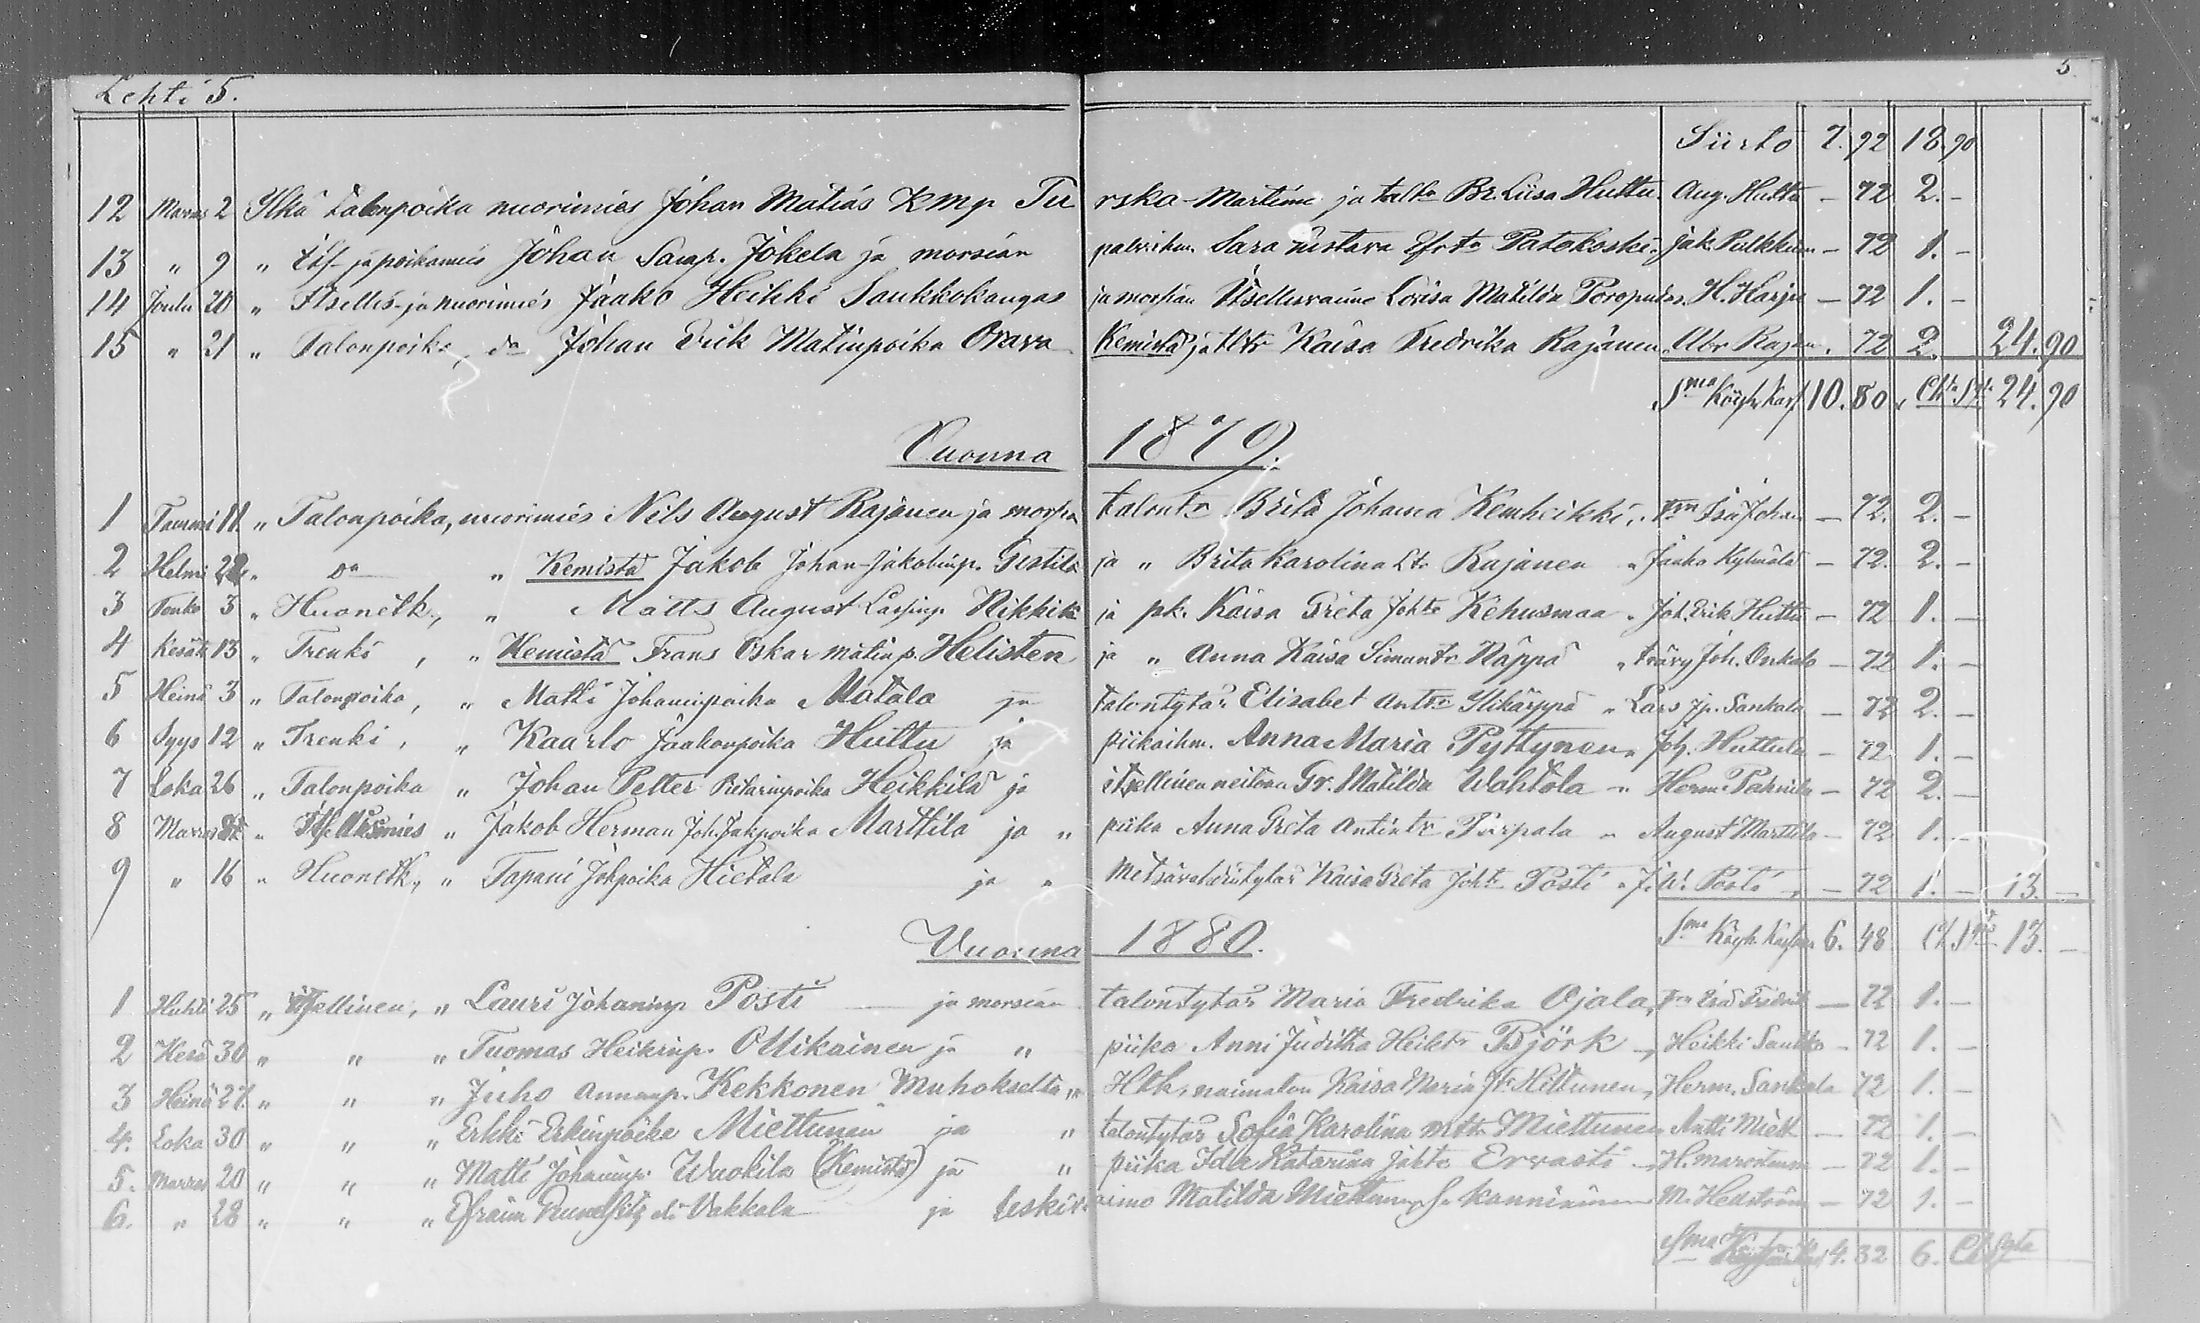 Lehti 5. 5.
Siirto 7. 92 18. 90
12 Marras 2 Ylkä talonpoika nuorimies Johan Matias Kmp Turska-Martimo ja taltr Br. Liisa Huttu. Aug. Huttu — 72 2. —
13 " 9 " Its. ja poikamies Johan Samp. Jokela ja morsian palv.ihm. Sara Gustava Patokoski. Jak Pulkkinen — 72 1. —
14 Joulu 20 " Itsellis- ja nuorimies Jaako Heikki Saukkokangas ja morsian Itsellisvaimo Lovisa Matilda Poropudas. H. Karju — 72 1. —
15 " 21 " Talonpoika, do Johan Erik Matinpoika Orava Kemistä ja tltr Kaisa Fredrika Rajänen. Abr Rajän. 72 2. 24. 90
Sma Köyh. Kas 10. 80 24. 90
Vuonna 1879.
1 Tammi 11 " Talonpoika, nuorimies Nils August Rajänen ja morsia talontr Brita Johanna Kemheikki, Isä Johan — 72. 2. —
2 Helmi " Da " Kemistä Jakob Johan-Jakobinp. Gestilä ja " Brita Karolina Rajänen " Jaako Kylmälä — 72. 2. —
3 Touko 3 " Huonetk., " Matts August Hikkilä ja pk. Kaisa Greta Johtr Kehusmaa . Joh. Erik Huttu — 72 1. —
4 Kesäk 13 " Trenki , " Kemistä Frans Oskar Matinp. Helisten ja " Anna Kaisa Simontr Näppä " Joh. Onkalo — 72 1. —
5 Heinä 3 " Talonpoika, " Matti Johaninpoika Matala ja talontytär Elisabet Anttr Ylikärppä " Lars Jp. Sankala — 72 2. —
6 Syys 12 " Trenki , " Kaarlo Jaakonpoika Huttu ja piikaihm. Anna Maria Pyttynen " Joh. Huttula — 72 1. —
7 Loka 26 " Talonpoika " Johan Petter Pietarinpoika Heikkilä ja itsellinen neitonen Gr. Matilda Wahtola " Herm. — 72 2. —
8 Marras " Itsellismies " Jakob Herman Joh. Jakpoika Marttila ja " piika Anna Greta Antintr Pirpala " August Marttila — 72 1. —
9 " 16 " Huonetk., " Tapani Johpoika Hietala ja " Metsävahdintytär Kaisa Greta Johtr Posti " J. W. Posti, — 72 1. — 13. —
Sma Köyh. 6. 48 13. —
Vuonna 1880.
1 Huhti 25 " itsellinen, " Lauri Johaninp Posti ja morsian talontytär Maria Fredrika Ojala, Fredrik — 72 1. —
2 Kesä 30 " " " Tuomas Heikinp. Ollikainen ja " piika Anni Juditha Heiktr Björk , Heikki Saukko — 72 1. —
3 Heinä 27. " " " Juho Annanp. Kekkonen Muhokselta " Htk, naimaton Kaisa Maria Jtr Hiltunen, Herm. Sankala 72 1. —
4. Loka 30 " " " Erkki Erkinpoika Miettunen ja " talontytär Sofia Karolina Miettunen Antti Miett — 72 1. —
5. Marras 20 " " " Matti Johaninp. Wuokila (Kemistä) ja " piika Ida Katariina Johtr Ervasti — 72 1. —
6. " 28 " " " Efraim eli Vakkala ja leskivaimo Matilda Miettunen s. Kanniainen M. Hedström — 72 1. —
Sma 4. 32 6.